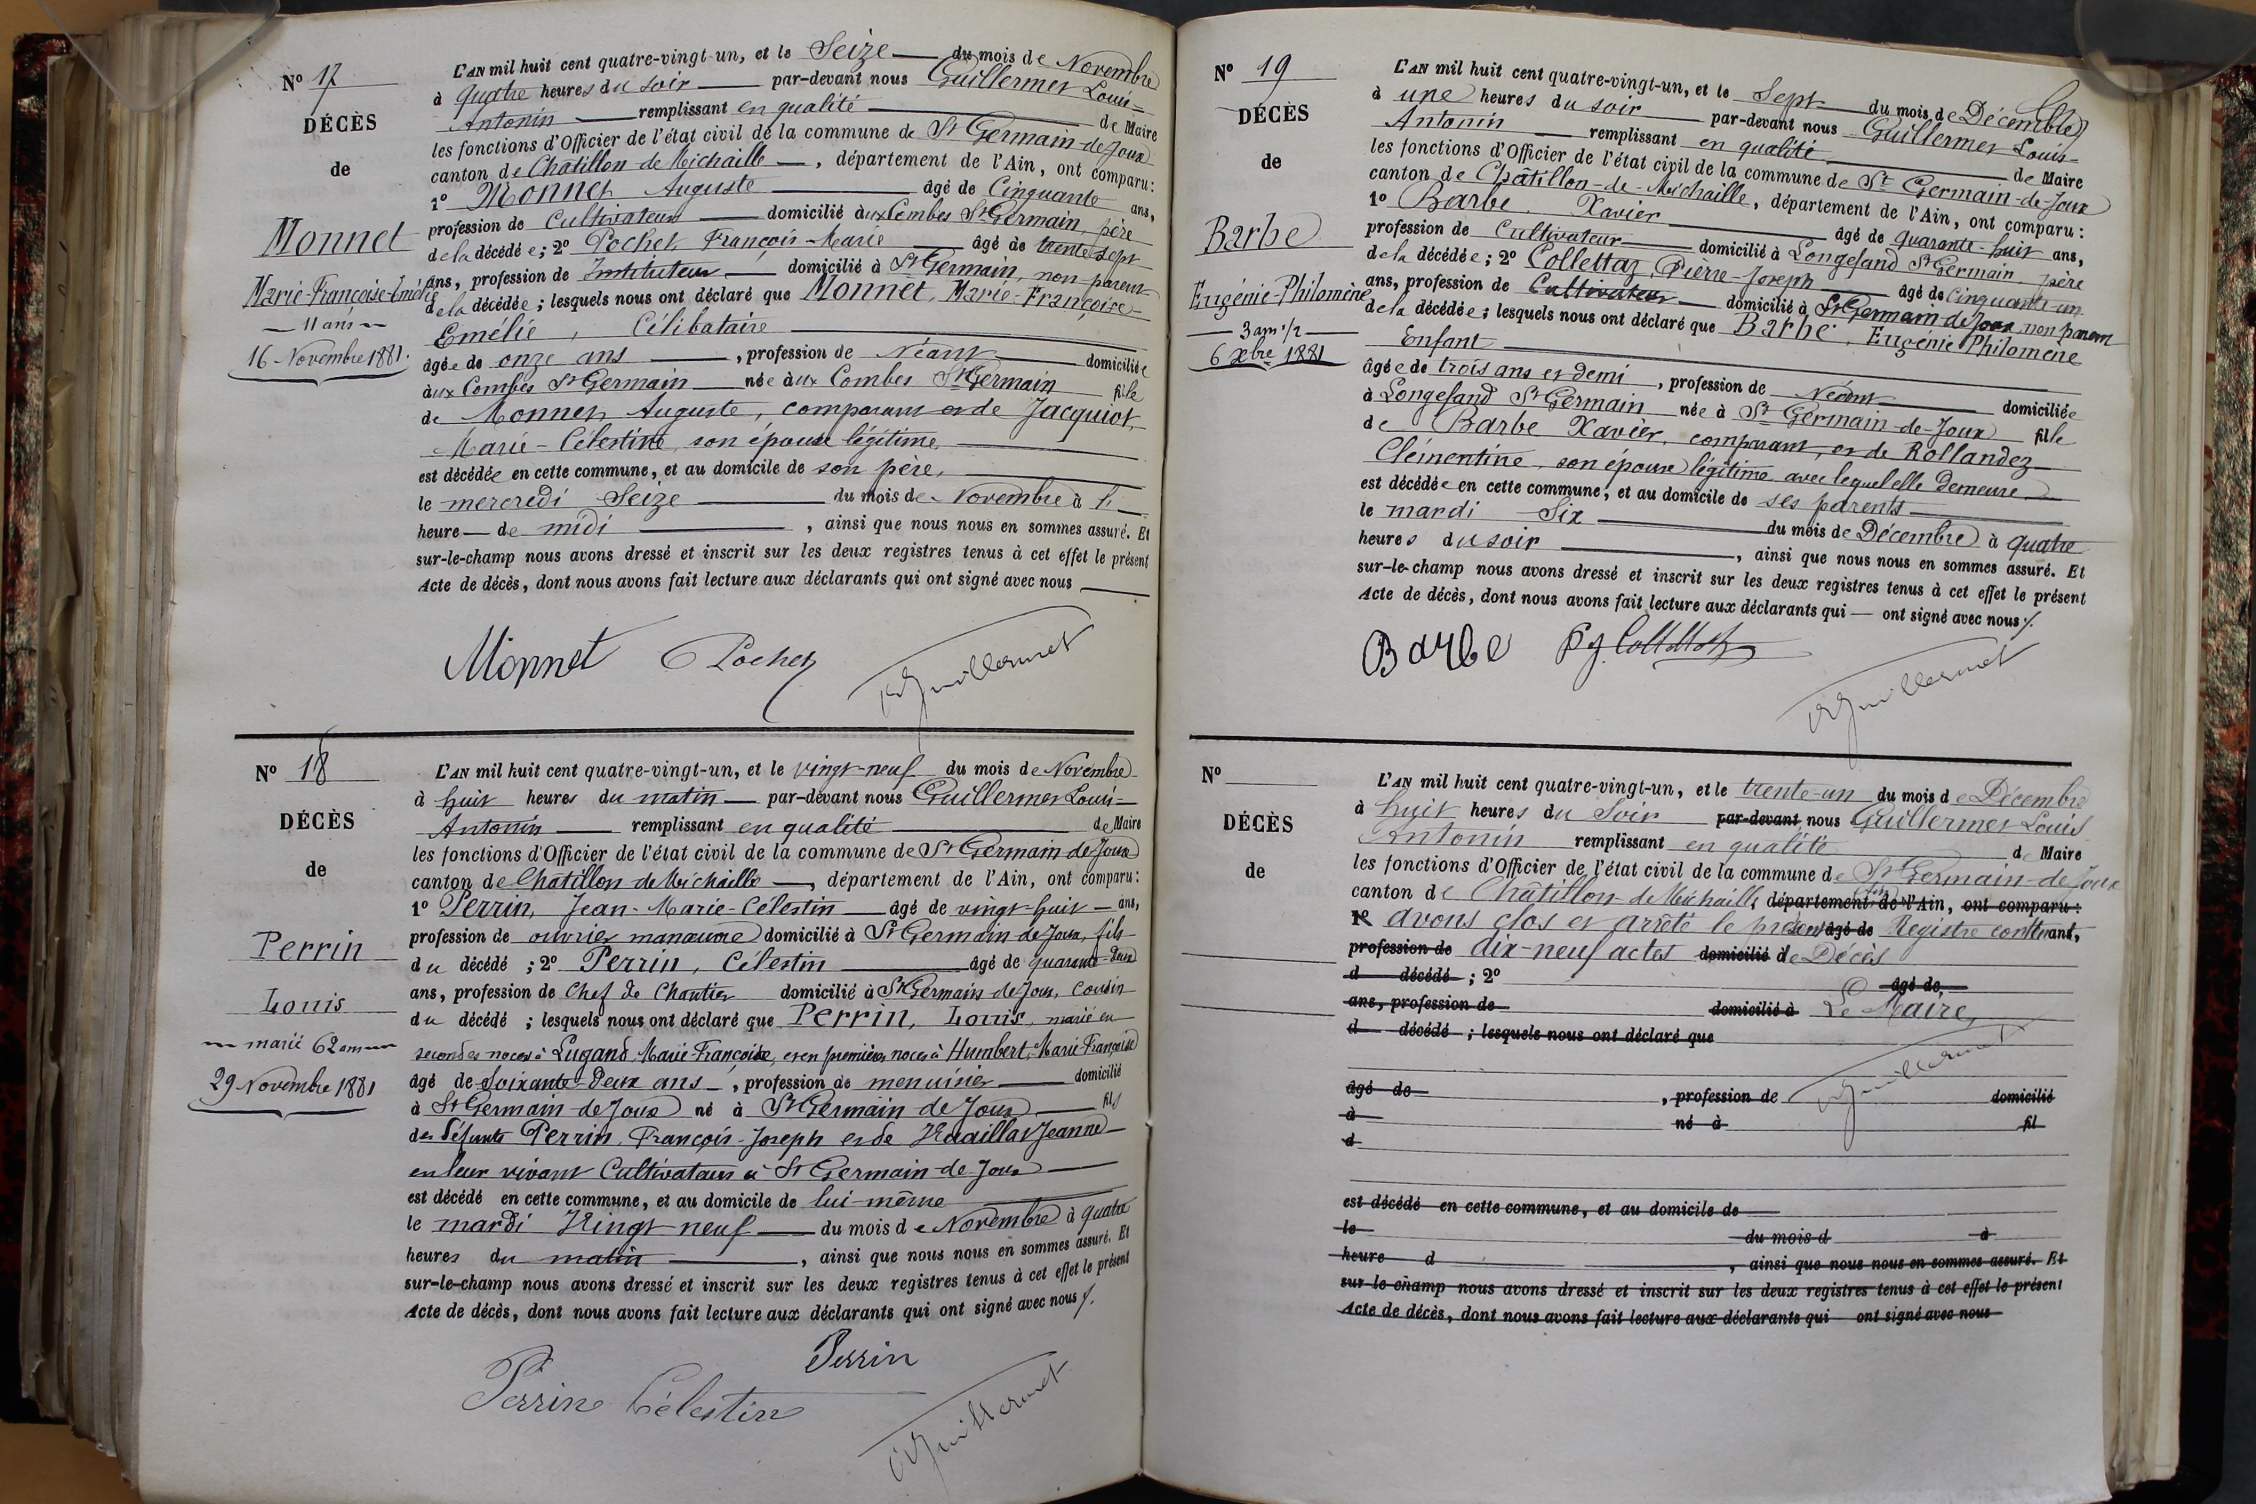 N° 17
DÉCÈS
de
Monnet
Marie-Françoise-Emélie
11 ans
16 Novembre 1881.
L'AN mil huit cent quatre-vingt-un, et le Seize du mois de Novembre
à quatre heures du soir par-devant nous Guillermet Louis-
Antonin remplissant en qualité de Maire
les fonctions d'Officier de l'état civil de la commune de St Germain-de-Joux
canton de Châtillon-de-Michaille, département de l'Ain, ont comparu:
1° Monnet Auguste âgé de Cinquante ans,
profession de Cultivateur domicilié aux Combes St Germain, père
de la décédée; 2° Pochet François-Marie âgé de trente-sept
ans, profession de Instituteur domicilié à St Germain, non parent
de la décédée; lesquels nous ont déclaré que Monnet, Marie-Françoise-
Emélie, Célibataire
âgée de onze ans, profession de Néant domiciliée
aux Combes St Germain née aux Combes St Germain fille
de Monnet, Auguste, comparant et de Jacquiot,
Marie-Célestine, son épouse légitime
est décédée en cette commune, et au domicile de son père,
le mercredi Seize du mois de Novembre à
heure de midi, ainsi que nous nous en sommes assuré. Et
sur-le-champ nous avons dressé et inscrit sur les deux registres tenus à cet effet le présent
Acte de décès, dont nous avons fait lecture aux déclarants qui ont signé avec nous
Monnet Pochet Guillermet
N° 18
DÉCÈS
de
Perrin
Louis
marié 62 ans
29 Novembre 1881
L'AN mil huit cent quatre-vingt-un, et le vingt-neuf du mois de Novembre
à huit heures du matin par-devant nous Guillermet Louis-
Antonin remplissant en qualité de Maire
les fonctions d'Officier de l'état civil de la commune de St Germain de Joux
canton de Châtillon de Michaille, département de l'Ain, ont comparu:
1° Perrin, Jean-Marie-Célestin âgé de vingt-huit ans,
profession de ouvrier manœuvre domicilié à St Germain de Joux, fils
du décédé; 2° Perrin, Célestin âgé de quarante-deux
ans, profession de Chef de Chantier domicilié à St Germain de Joux, cousin
du décédé; lesquels nous ont déclaré que Perrin, Louis, marié en
secondes noces à Lugand, Marie Françoise, et en premières noces à Humbert, Marie-Françoise
âgé de Soixante-Deux ans, profession de menuisier domicilié
à St Germain-de-Joux né à St Germain de Joux fils
des défunts Perrin, François-Joseph et de Jeanne
en leur vivant Cultivateurs à St Germain-de-Joux
est décédé en cette commune, et au domicile de lui-même
le mardi Vingt neuf du mois de Novembre à quatre
heures du matin, ainsi que nous nous en sommes assuré. Et
sur-le-champ nous avons dressé et inscrit sur les deux registres tenus à cet effet le présent
Acte de décès, dont nous avons fait lecture aux déclarants qui ont signé avec nous
Perrin
Perrin Célestin
Guillermet
N° 19
DÉCÈS
de
Barbe
Eugénie-Philomène
3 ans 1/2
6 xbre 1881
L'AN mil huit cent quatre-vingt-un, et le Sept du mois de Décembre
à une heures du soir par-devant nous Guillermet Louis-
Antonin remplissant en qualité de Maire
les fonctions d'Officier de l'état civil de la commune de St Germain-de-Joux
canton de Châtillon-de-Michaille, département de l'Ain, ont comparu:
1° Barbe Xavier âgé de quarante-huit ans,
profession de Cultivateur domicilié à Longefand St Germain, père
de la décédée; 2° Collettaz, Pierre-Joseph âgé de Cinquante-un
ans, profession de Cultivateur domicilié à St Germain de Joux non parent
de la décédée; lesquels nous ont déclaré que Barbe, Eugénie Philomène
Enfant
âgée de trois ans et demi, profession de Néant domiciliée
à Longefand St Germain née à St Germain-de-Joux fille
de Barbe Xavier, comparant, et de Rollandez
Clémentine, son épouse légitime avec lequel elle demeure
est décédée en cette commune, et au domicile de ses parents
le mardi Six du mois de Décembre à quatre
heures du soir, ainsi que nous nous en sommes assuré. Et
sur-le-champ nous avons dressé et inscrit sur les deux registres tenus à cet effet le présent
Acte de décès, dont nous avons fait lecture aux déclarants qui ont signé avec nous
Barbe Guillermet
N°
DÉCÈS
de
L'AN mil huit cent quatre-vingt-un, et le trente-un du mois de Décembre
à huit heures du Soir par-devant nous Guillermet Louis
Antonin remplissant en qualité de Maire
les fonctions d'Officier de l'état civil de la commune de St Germain-de-Joux
canton de Châtillon-de-Michaille département de l'Ain, ont comparu:
1° avons clos et arrêté le présent âgé de Registre contenant ans,
profession de dix-neuf actes domicilié de Décès
d décédé; 2° âgé de
ans, profession de domicilié à Le Maire,
d décédé; lesquels nous ont déclaré que
Guillermet
âgé de, profession de domicilié
à né à fil
d
est décédé en cette commune, et au domicile de
le du mois d à
heure d, ainsi que nous nous en sommes assuré. Et
sur-le-champ nous avons dressé et inscrit sur les deux registres tenus à cet effet le présent
Acte de décès, dont nous avons fait lecture aux déclarants qui ont signé avec nous